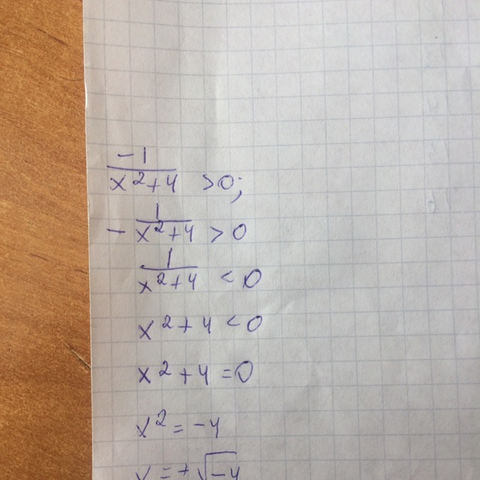 -1/x²+4 >0;
- 1/x²+4 > 0
1/x²+4 < 0
x²+4 < 0
x²+4 = 0
x² = -4
x = ±√-4